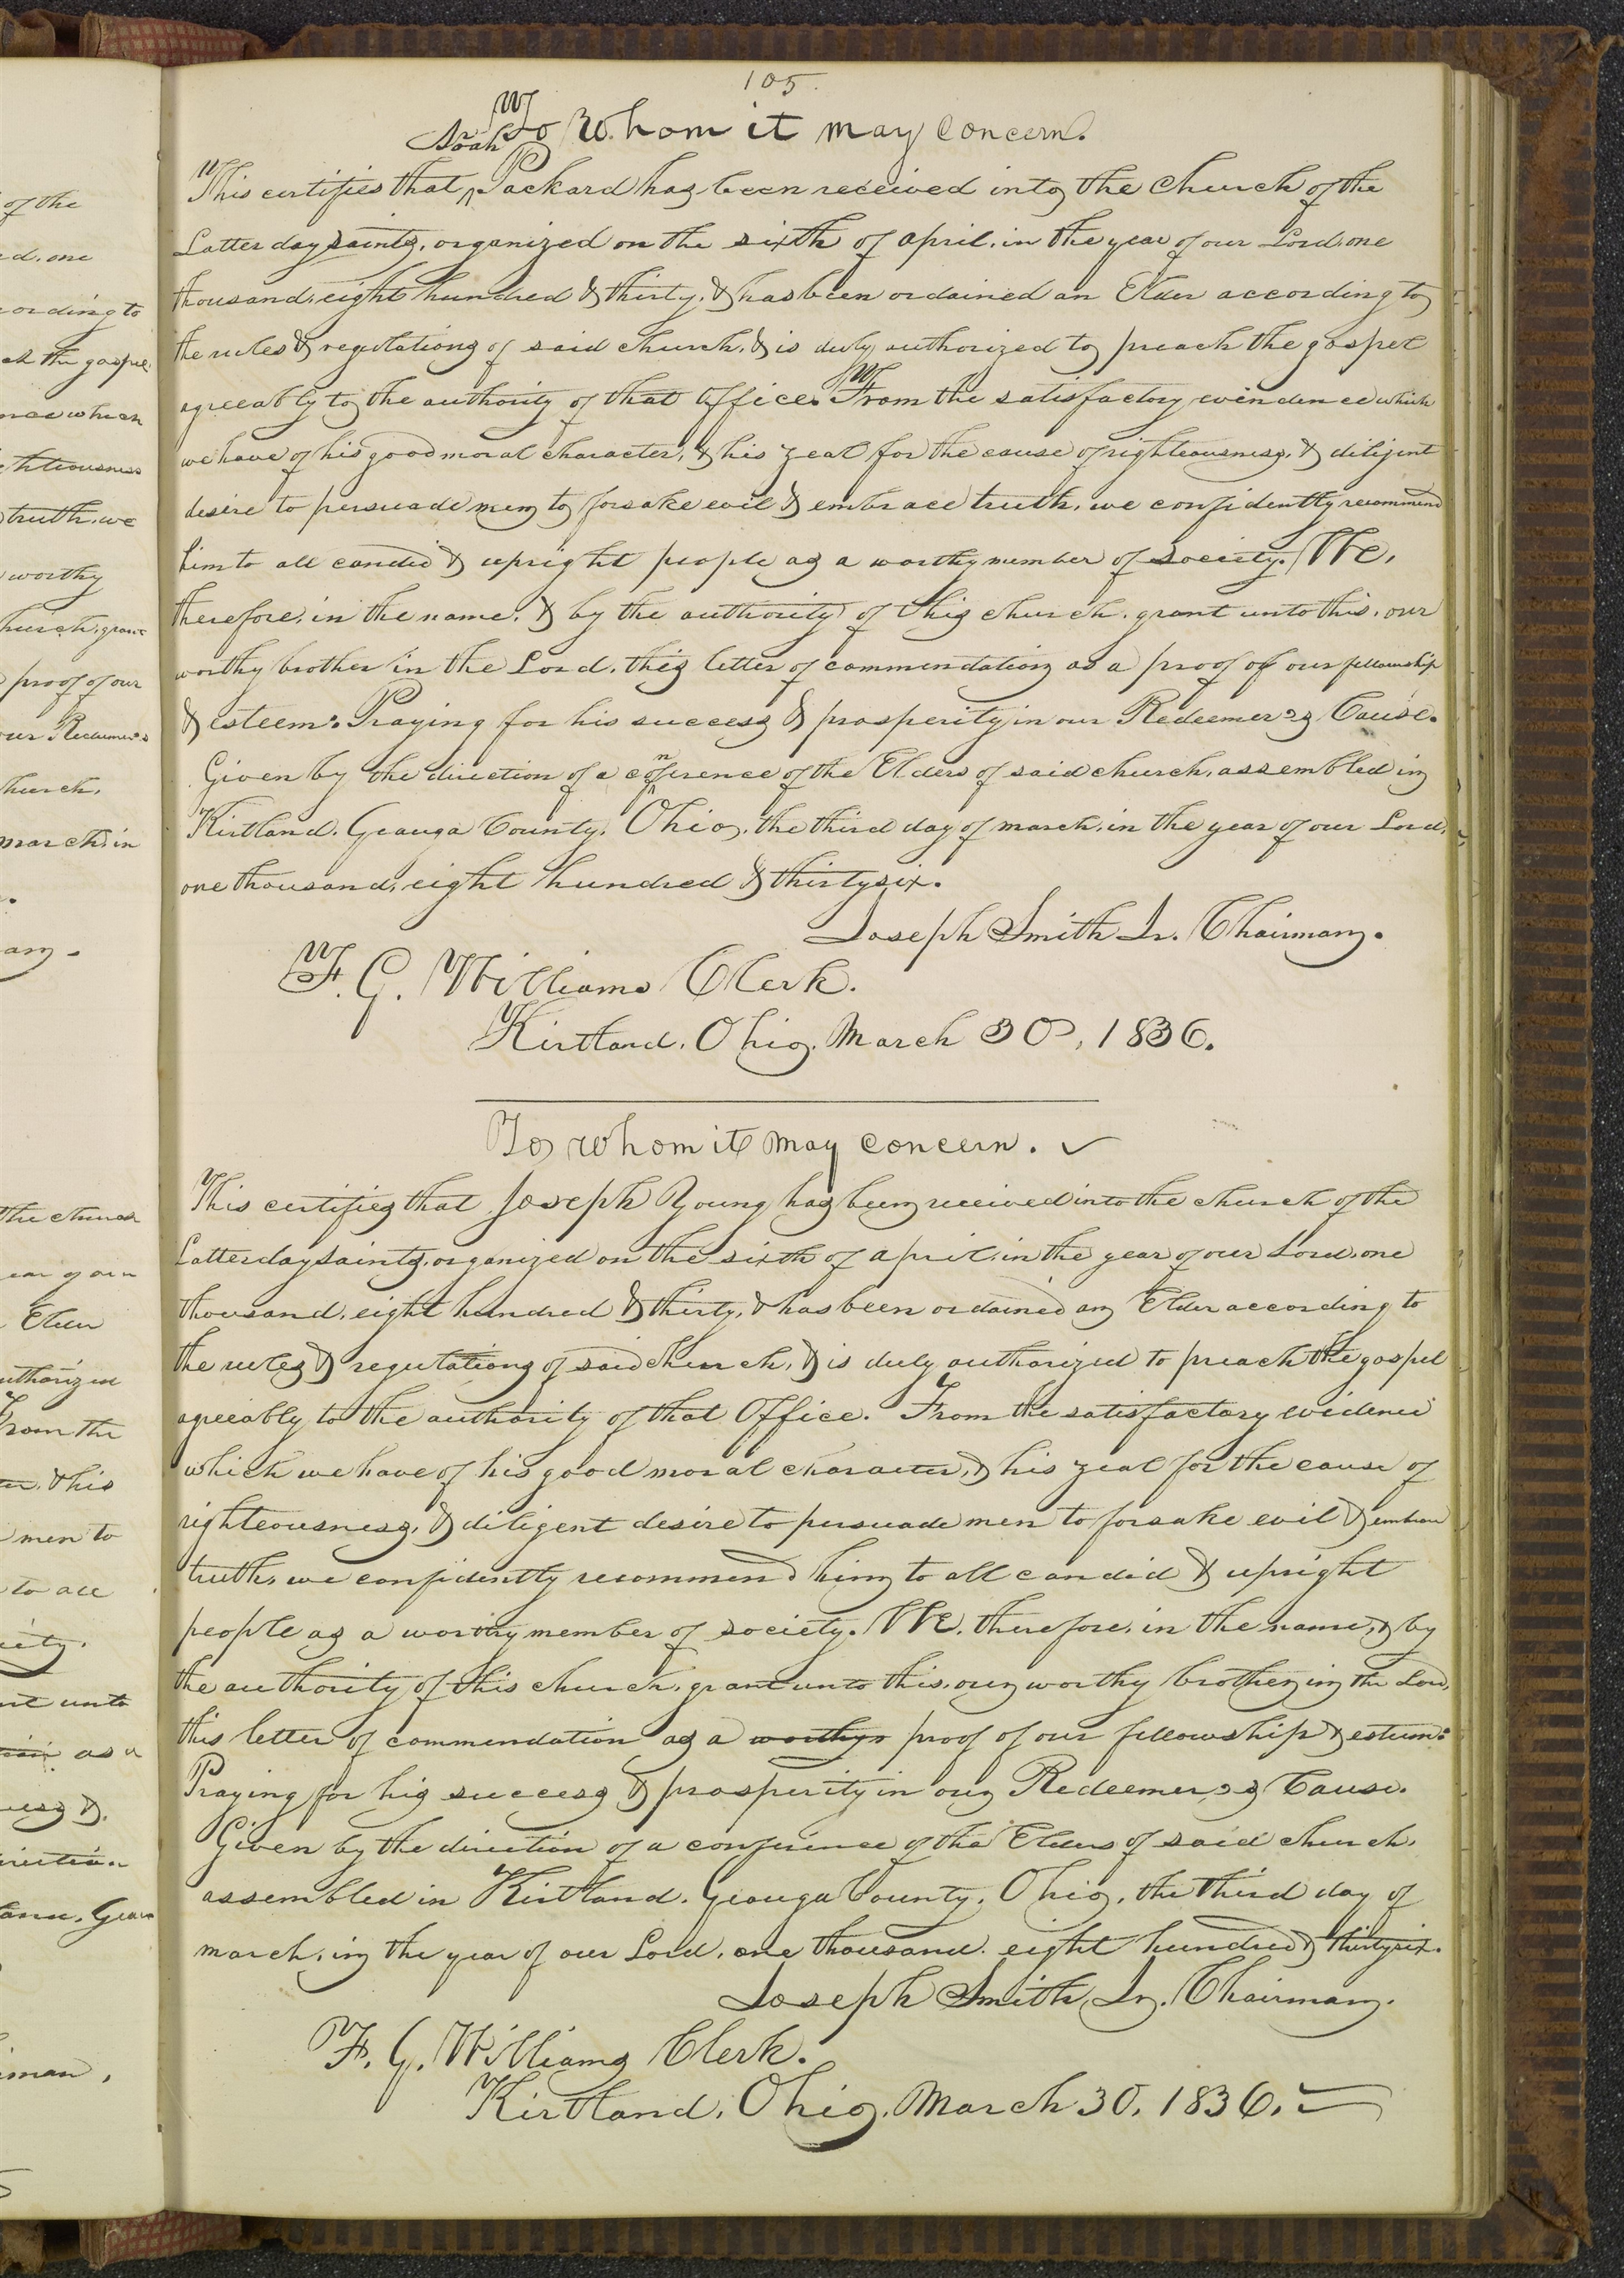 105.
To Whom it may concern.
This certifies that ^Noah Packard has been received into the church of the
Latter day saints, organized on the sixth of april, in the year of our Lord, one
thousand, eight hundred & thirty, & has been ordained an Elder according to
the rules & regulations of said church, & is duly authorized to preach the gospel
agreeably to the authority of that Office. From the satisfactory evindence which
we have of his good moral character, & his zeal for the cause of righteousness, & diligent
desire to persuade men to forsake evil & embrace truth, we confidently recommend
him to all candid & upright people as a worthy member of society. We,
therefore, in the name, & by the authority of this church, grant unto this, our
worthy brother in the Lord, this letter of commendation as a proof of our fellowship
& esteem: Praying for his success & prosperity in our Redeemer's Cause.
Given by the direction of a co^nference of the Elders of said church, assembled in
Kirtland, Geauga County, Ohio, the third day of march, in the year of our Lord,
one thousand, eight hundred & thirtysix.
Joseph Smith Jr. Chairman.
F. G. Williams Clerk.
Kirtland, Ohio, March 30, 1836.
To whom it may concern.
This certifies that Joseph Young has been received into the church of the
Latter day saints, organized on the sixth of april, in the year of our Lord, one
thousand, eight hundred & thirty, & has been ordained an Elder according to
the rules & regulations of said church, & is duly authorized to preach the gospel
agreeably to the authority of that Office. From the satisfactory evidence
which we have of his good moral character, & his zeal for the cause of
righteousness, & diligent desire to persuade men to forsake evil & embrace
truth, we confidently recommend him to all candid & upright
people as a worthy member of society. We, therefore, in the name, & by
the authority of this church, grant unto this, our worthy brother in the Lord,
this letter of commendation as a worthy proof of our fellowship & esteem:
Praying for his success & prosperity in our Redeemer's Cause.
Given by the direction of a conference of the Elders of said church,
assembled in Kirtland, Geauga County, Ohio, the third day of
march, in the year of our Lord, one thousand, eight hundred & thirtysix.
Joseph Smith, Jr. Chairman.
F. G. Williams Clerk.
Kirtland, Ohio, March 30, 1836.